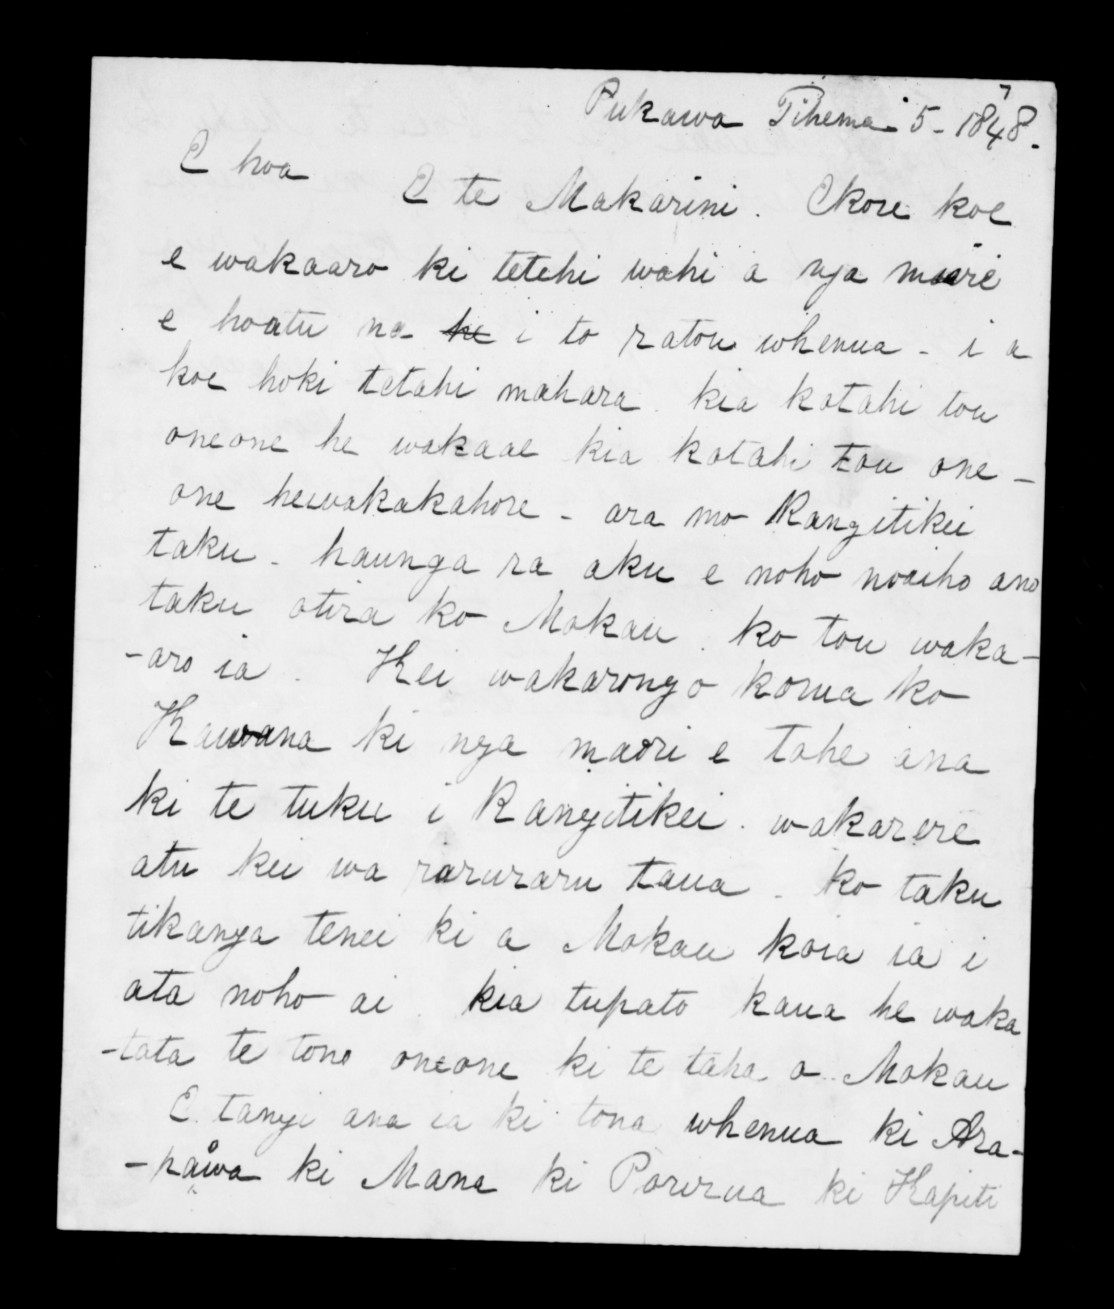 Pukawa Tihema 5 - 1848.
E hoa
E te Makarini. Ekore koe
e wakaaro ki tetehi wahi a nga maori
e hoatu na he i to ratou whenua - i a
koe hoki tetahi mahara. kia kotahi tou
oneone he wakaae kia kotahi tou one-
one hewakakahore - ara mo Rangitikei
taku - haunga ra aku e noho noaiho ano
taku otira ko Mokau. ko tou waka-
-aro ia. Kei wakarongo korua ko
Kawana ki nga maori e tohe ana
ki te tuku i Rangitikei. wakarere
atu kei wa raruraru taua. ko taku
tikanga tenei ki a Mokau koia ia i
ata noho ai. kia tupato kaua he waka
-tata te tono oneone ki te taha o Mokau
E tangi ana ia ki tona whenua ki Ara-
-pawa ki Mana ki Porirua ki Kapiti